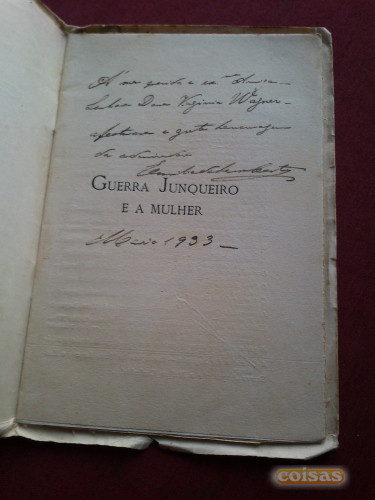 Senhora Dona Virginia Wagner
afectuosa e grata homenagem
da admiração
GUERRA JUNQUEIRO
E A MULHER
Maio 1933 –
coisas